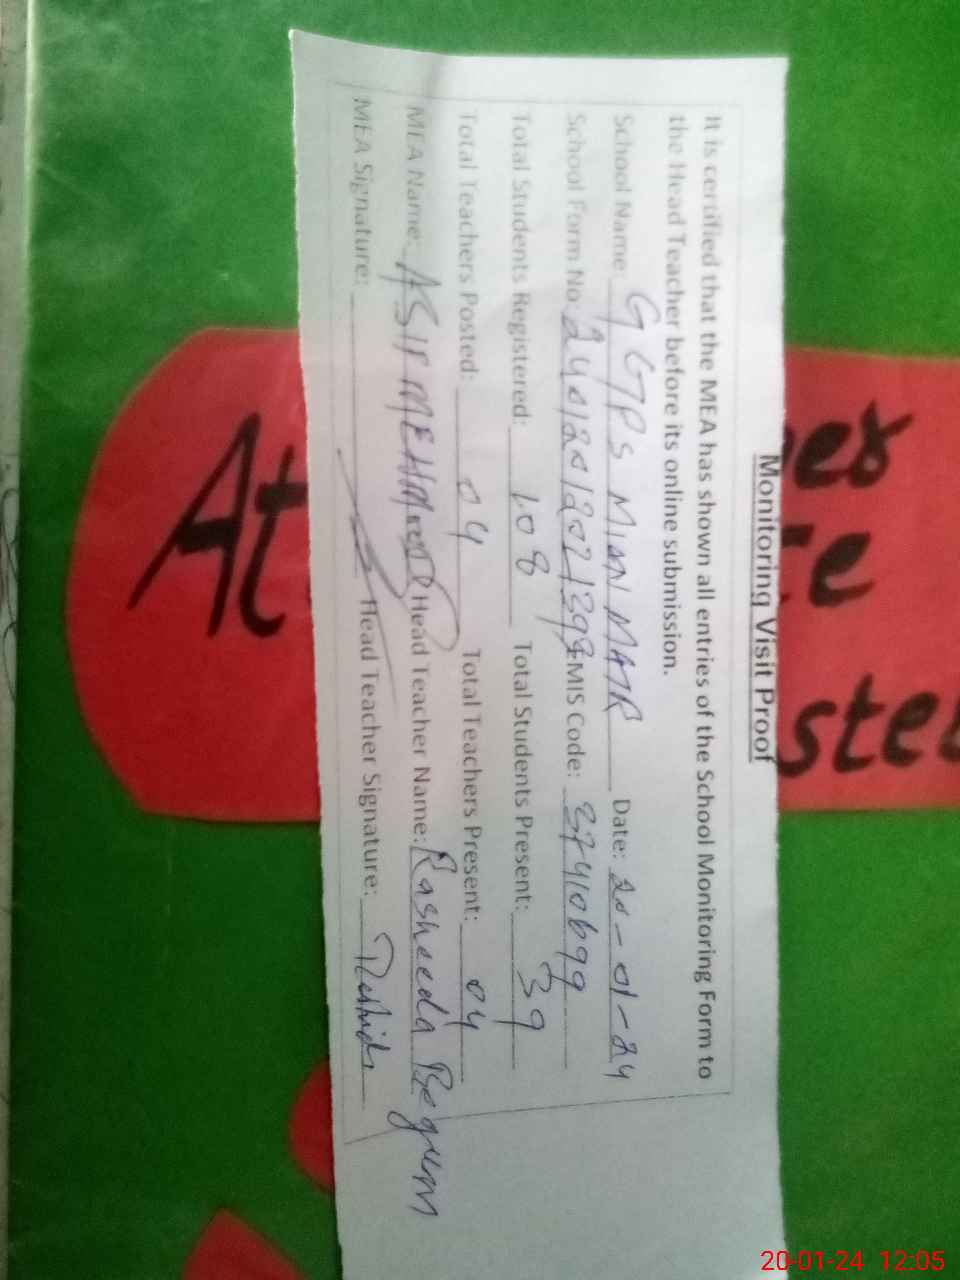 Monitoring Visit Proof
It is certified that the MEA has shown all entries of the School Monitoring Form to
the Head Teacher before its online submission.
School Name: GGPS MIAN MAIR Date: 20-01-24
School Form No: EMIS Code: 37410699
Total Students Registered: 108 Total Students Present: 39
Total Teachers Posted: 04 Total Teachers Present: 04
MEA Name: ASIF MEHMOOD Head Teacher Name: Rasheeda Begum
MEA Signature: Head Teacher Signature:
At
20-01-24 12:05